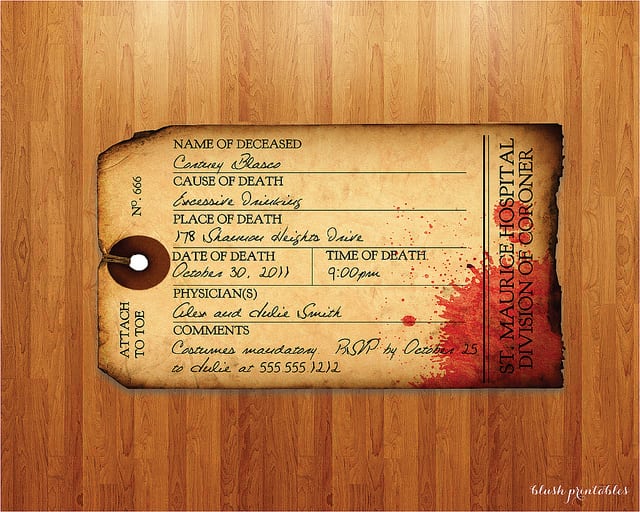 NAME OF DECEASED
Cortney Blasco
CAUSE OF DEATH
Excessive Drinking
PLACE OF DEATH
178 Shannon Heights Drive
DATE OF DEATH
October 30, 2011
TIME OF DEATH
9:00pm
PHYSICIAN(S)
Alex and Julie Smith
COMMENTS
Costumes mandatory. RSVP by October 25
to Julie at 555.555.1212
Nº. 666
ATTACH
TO TOE
ST. MAURICE HOSPITAL
DIVISION OF CORONER
blush printables